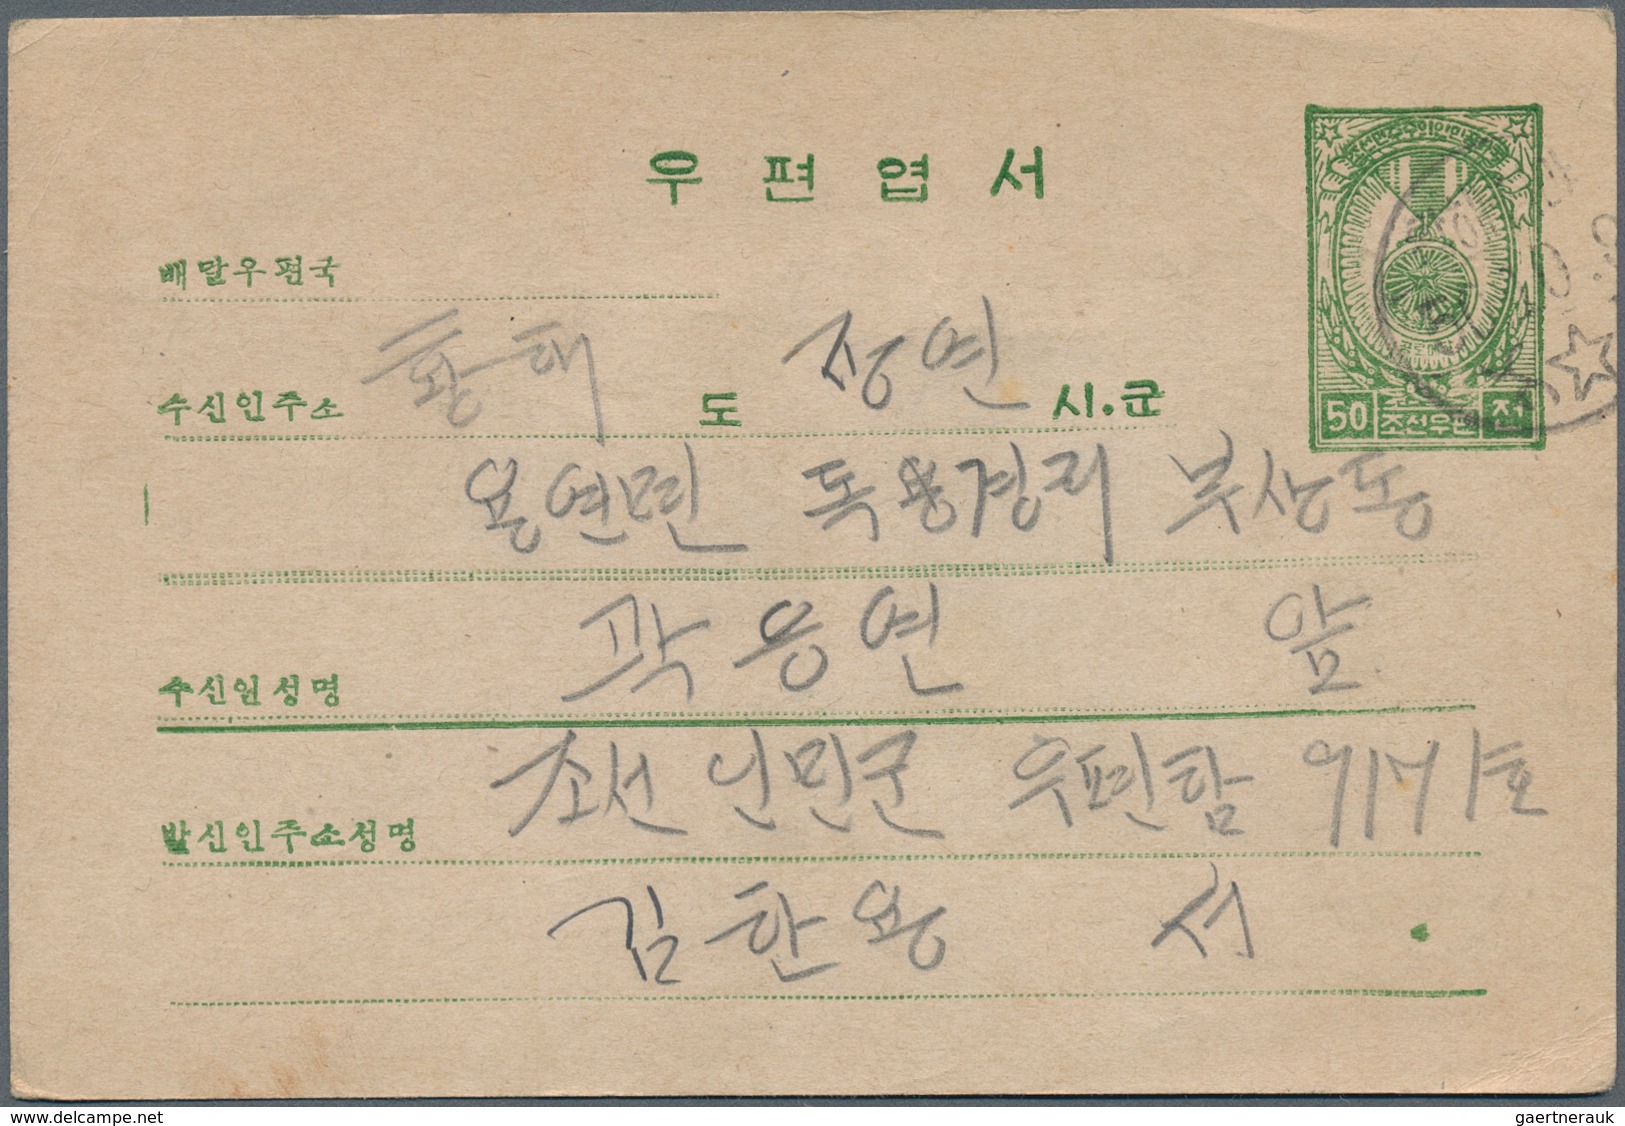 우편엽서
배달우편국
수신인주소 황해 도 장연 시.군
용연면 독용경리 부상동
수신인성명 곽용연 앞
발신인주소성명 조선인민군 우편함 호
김한용 서
조선민주주의인민공화국
50 조선우표 전
www.delcampe.net
gaertnerauk